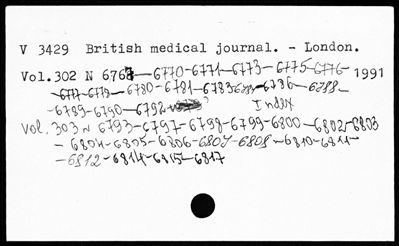 V 3429 British medical journal. - London.
Vol.302 N 6767—6770—6771—6773—6775—6776— 1991
—6777—6779—6780—6781—6783 6784—6786—6788—
—6789—6790—6792— Index
Vol. 303 N 6793—6797—6798—6799—6800—6802—6803
—6804—6805—6806—6807—6808—6810—6811—
—6812—6814—6815—6817